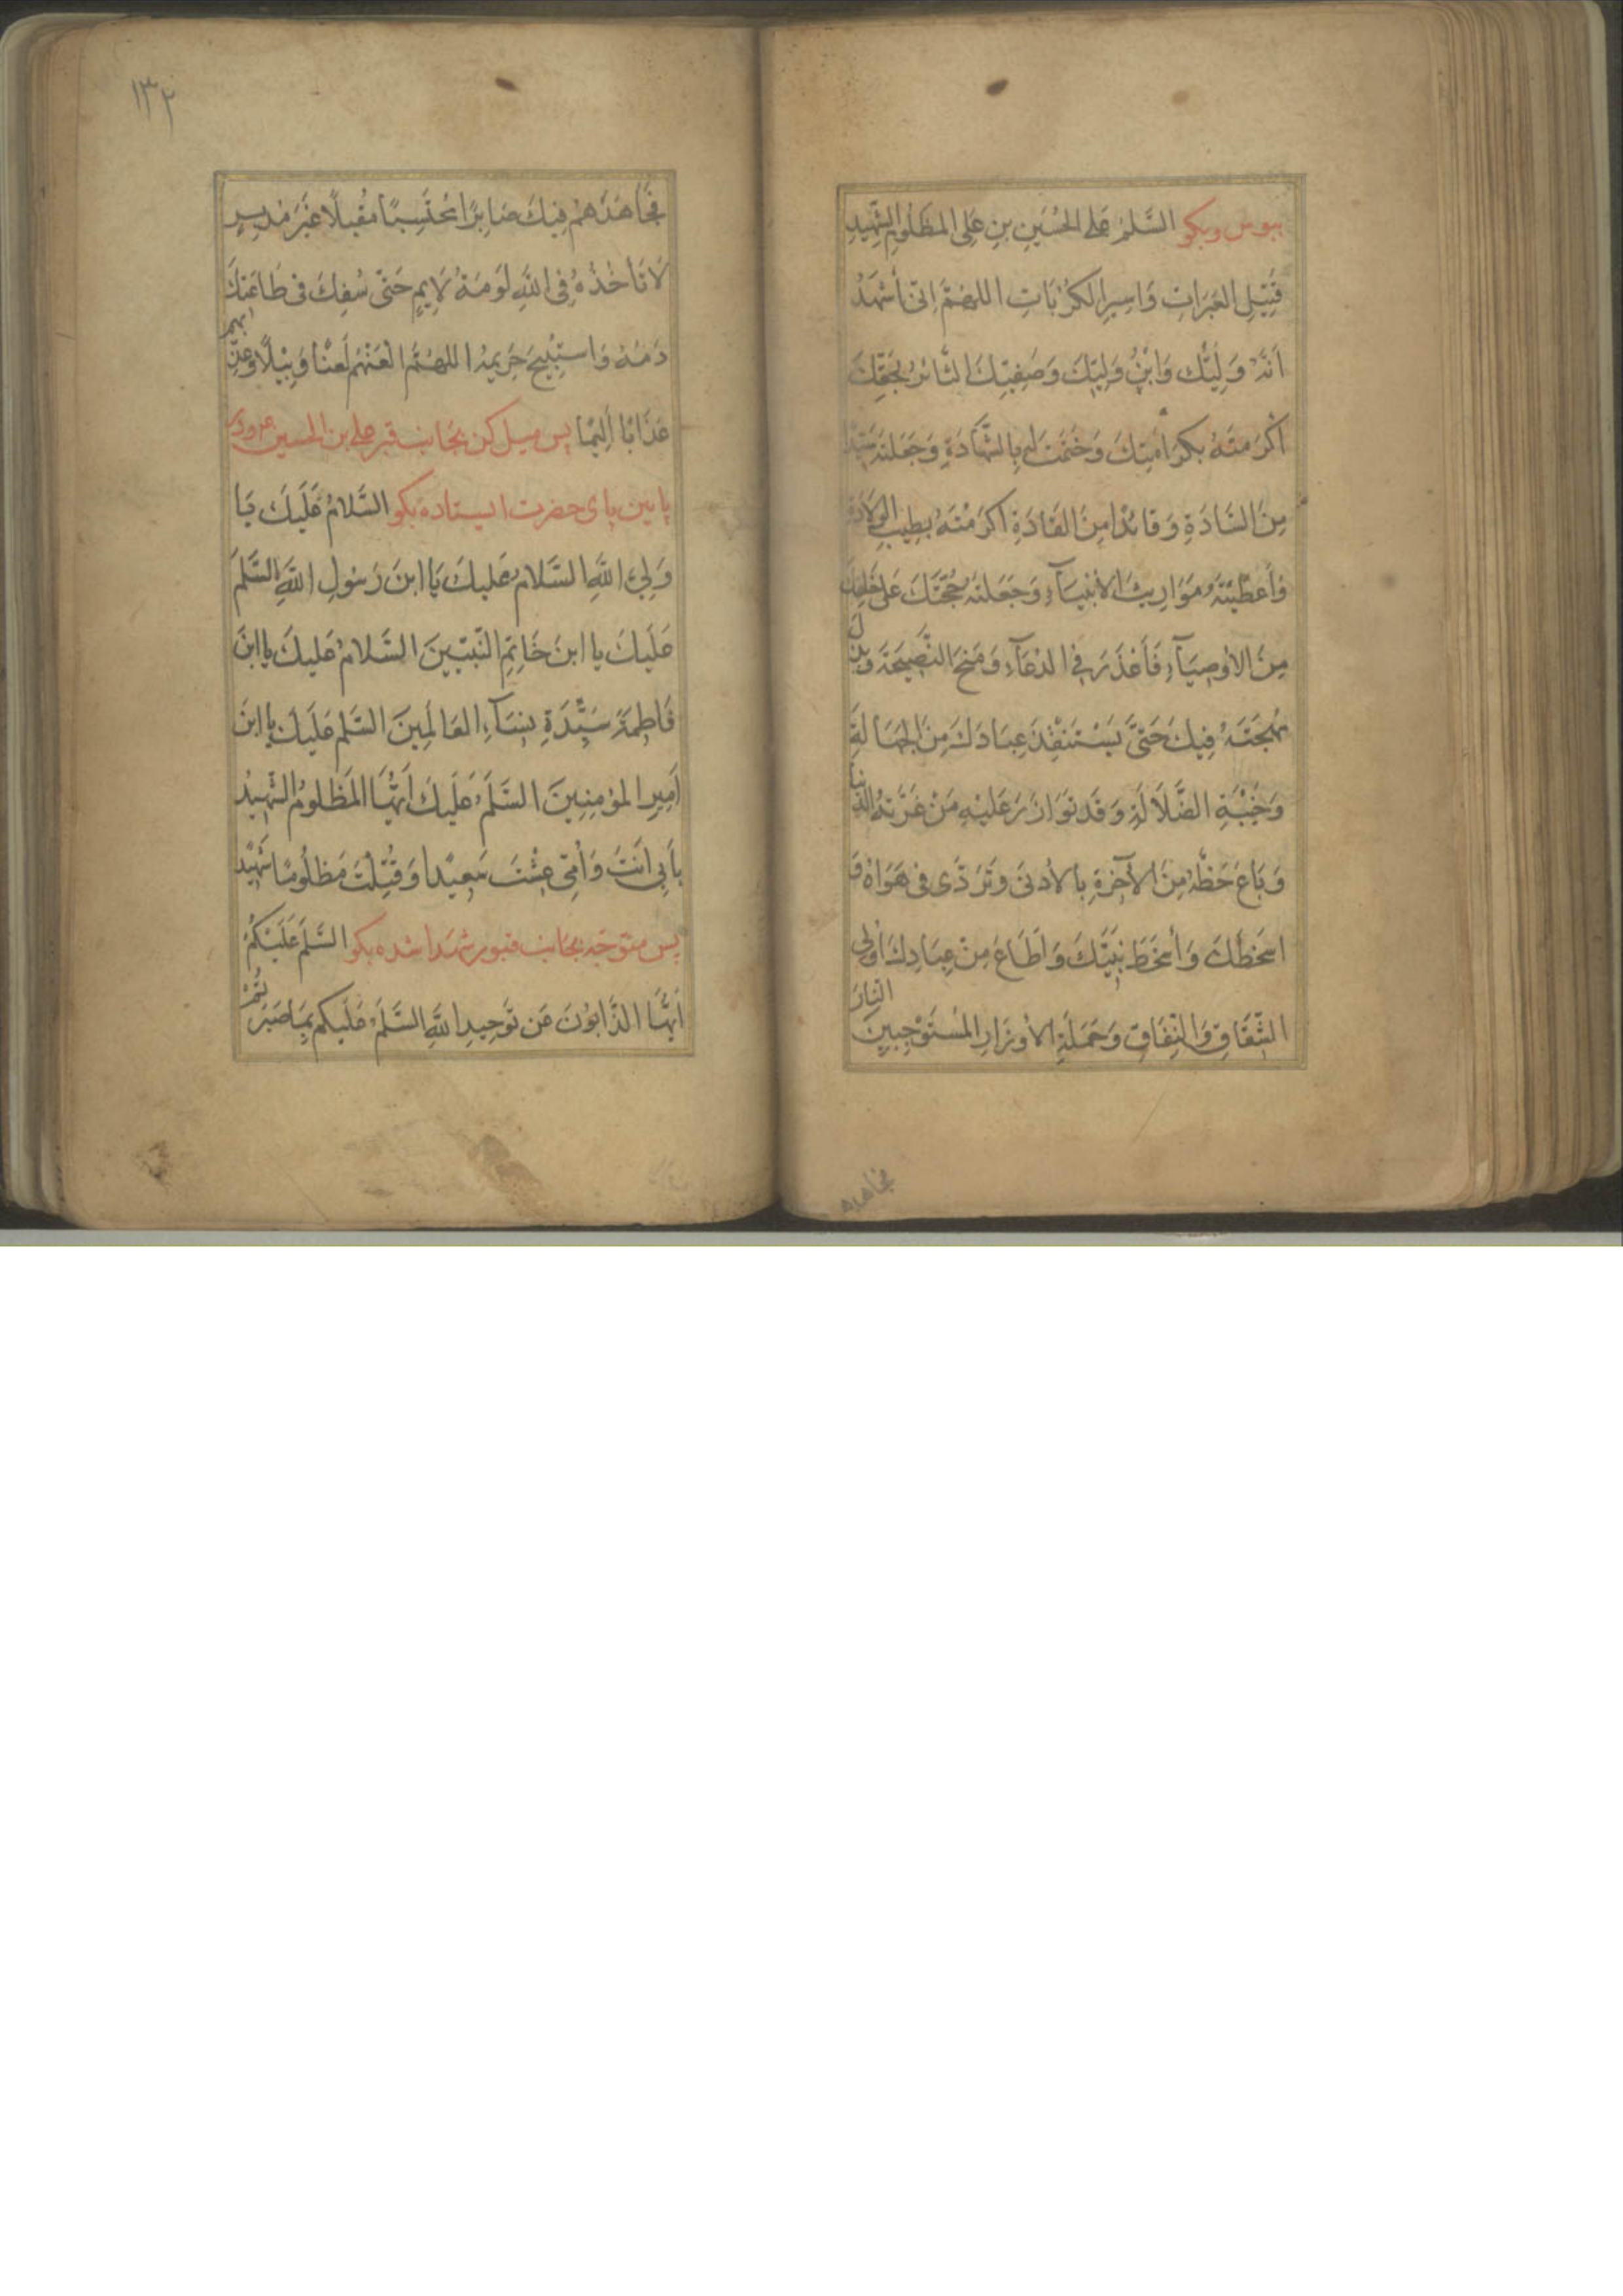 ببوس وبکو السَّلمُ عَلَى الحُسَينِ بنِ عَلِى المظلُومِ الشَّهِيدِ
قَتِيلِ العَبَراتِ وَاسِيرِ الكُرُبَاتِ اللهُمَّ اِنّى أَشهَدُ
اَنَّهُ وَلِيُّكَ وَابْنُ وَلِيِّكَ وَصَفِيِّكَ الثَّائرُ بحَقِّكَ
اَكْرَمتَهُ بِكَرَامَتِكَ وَخَتَمتَ لَهُ بِالشَّهادَةِ وَجَعَلتَهُ سَيِّدًا
مِنَ السَّادَةِ وَقائدًا مِنَ القَادَةِ اَكرَمْتَهُ بِطِيبِ الوِلَادَةِ
وَأَعطَيتَهُ مَوَارِيثَ الأنبيَآءِ وَجَعَلتَهُ حُجَّتَكَ عَلى خَلقِكَ
مِنَ الأوصِيَآءِ فَاَعْذَرَ فِى الدُعَآءِ وَمَنَحَ النَّصِيحَةَ وَبَذَلَ
مُهجَتَهُ فِيكَ حَتىَّ يَسْتَنقِذَ عِبَادَكَ مِنَ الجَهَالَةِ
وَخَيْبَةِ الضَّلَالَةِ وَقَد تَوَازَرَ عَلَيْهِ مَنْ غَرَّتهُ الدُّنيَا
وَبَاعَ حَظَّهُ مِنَ الآخِرَةِ بِالأدنى وَتَرَدَّى فى هَوَاهُ وَ
اسخَطَكَ وَأَسخَطَ نَبِيَّكَ وَاَطَاعَ مِنْ عِبَادِكَ اُولِى
الشِّقَاقِ وَالنِّفَاقِ وَحَمَلَةِ الأوزَارِ المُسْتَوْجِبِينَ النارَ
فجاهدهم
١٣٢
فجَاهَدَهمْ فِيكَ صَابِرًا مُحتَسِبًا مُقبِلًا غَيْرَ مُدبِرٍ
لَا تَأخُذُهُ فِى اللهِ لَومَةُ لَايِمٍ حَتّى سُفِكَ فى طَاعَتِكَ
دَمُهُ وَاستُبِيحَ حَرِيمُهُ اللهُمَّ العَنْهُم لَعنًا وَبِيْلًا وَعَذِّبهم
عَذَابًا اَلِيمًا پس ميل كن بجانب قبر على بن الحسين ع و در
پايين پاى حضرت ايستاده بكو السَّلامُ عَلَيكَ يَا
وَلِىَّ اللهِ السَّلامُ عَليكَ يَا ابنَ رَسُولِ اللهِ السَّلمُ
عَلَيكَ يا ابنَ خَاتِمِ النَّبيّينَ السَّلامُ عَليكَ يا ابنَ
فَاطِمَةَ سَيِّدَةِ نِسَآءِ العَالَمِينَ السَّلمُ عَلَيكَ يا ابنَ
اَمِيرِ المؤمِنِينَ السَّلَمُ عَلَيكَ اَيُّهَا المَظلومُ الشَّهِيدُ
بِاَبِى اَنتَ وَاُمّى عِشْتَ سَعِيدًا وَقُتِلْتَ مَظلُومًا شَهِيدًا
پس متوجه بجانب قبور شهدا شده بكو السَّلَمُ عَلَيْكُمْ
اَيُّهَا الذَّابُّونَ عَن تَوحِيدِ اللهِ السَّلَمُ عَلَيكم بِمَا صَبَرتُمْ